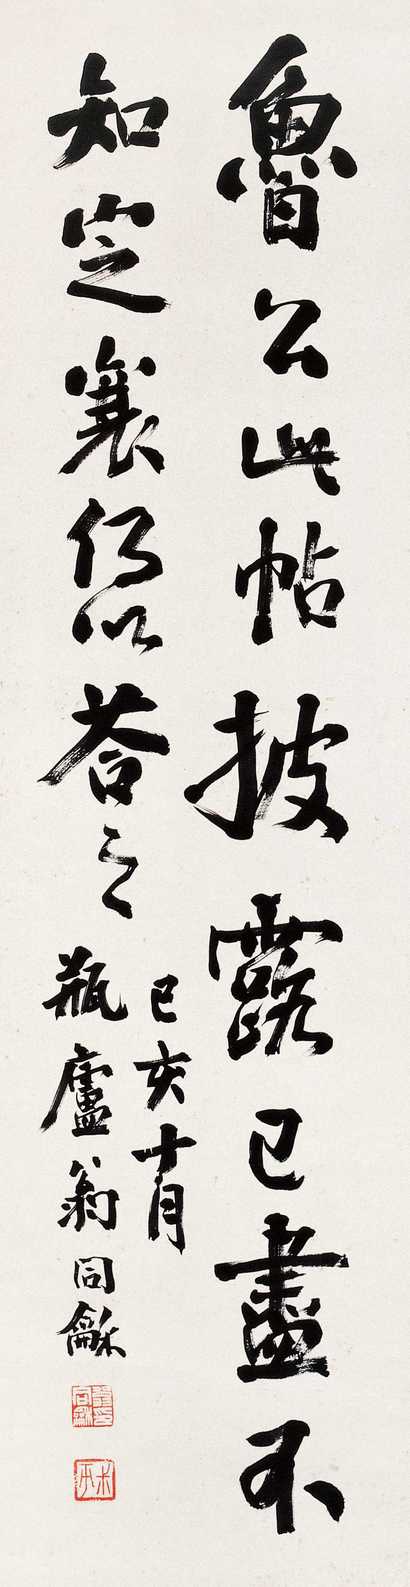 魯公此帖披露已盡不
知定襄何以答之
己亥十月
瓶廬翁同龢